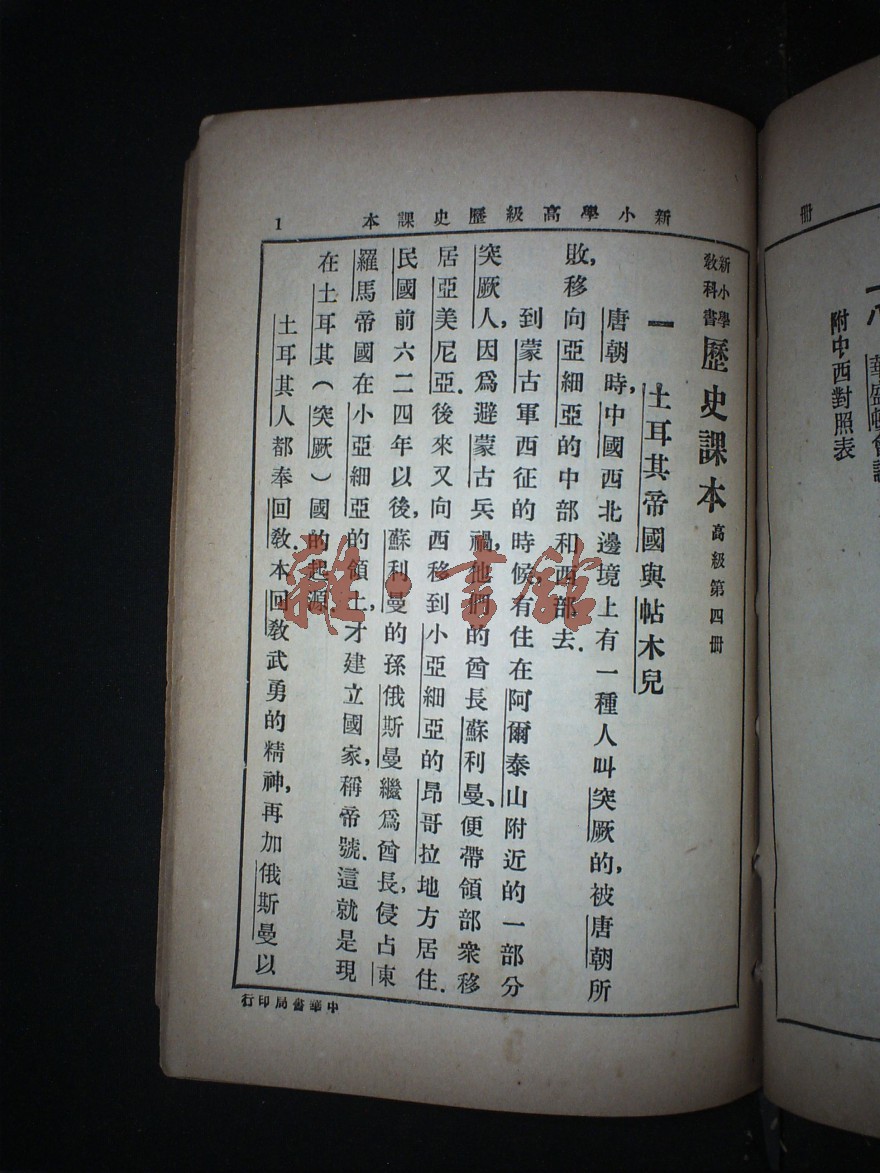 冊
附中西對照表
新小學高級歷史課本
1
新小學教科書 歷史課本 高級第四冊
一 土耳其帝國與帖木兒
唐朝時,中國西北邊境上有一種人叫突厥的,被唐朝所
敗,移向亞細亞的中部和西部去.
到蒙古軍西征的時候,有住在阿爾泰山附近的一部分
突厥人,因爲避蒙古兵禍,他們的酋長蘇利曼、便帶領部衆移
居亞美尼亞.後來又向西移到小亞細亞的昂哥拉地方居住.
民國前六二四年以後,蘇利曼的孫俄斯曼繼爲酋長,侵占東
羅馬帝國在小亞細亞的領土,才建立國家,稱帝號.這就是現
在土耳其(突厥)國的起源.
土耳其人都奉回教.本回教武勇的精神,再加俄斯曼以
中華書局印行
雜·書館